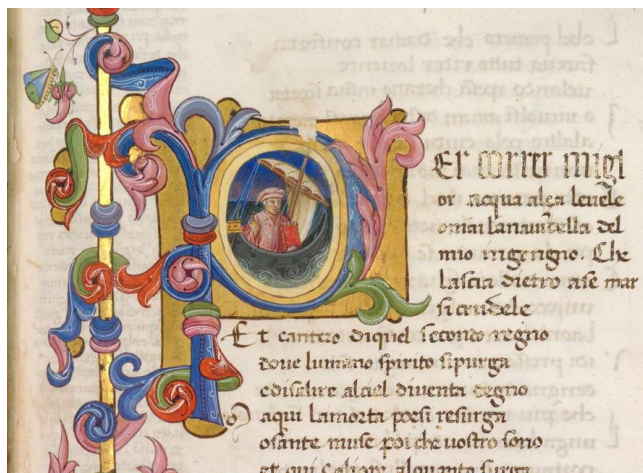 PEr correr migl
or acqua alça leuele
omai lanauicella del
mio ingengno. Che
lascia dietro ase mar
si crudele
Et cantero diquel secondo regno
doue lumano spirito sipurga
edisalire alciel diuenta degno
aqui lamorta poesi resurga
osante muse poi che uostro sono
et qui Caliope alquanto surga